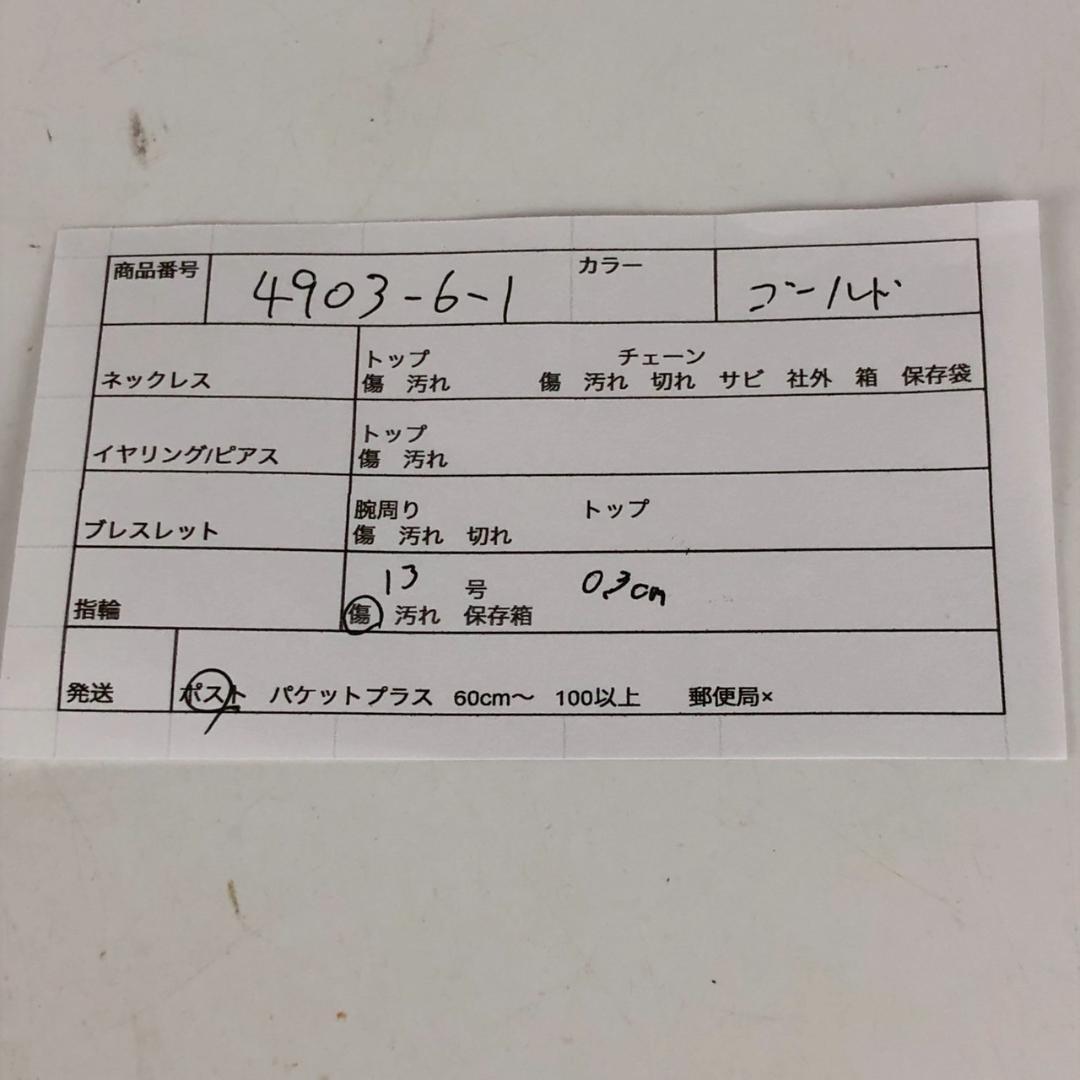 商品番号 4903-6-1 カラー ゴールド
トップ チェーン
ネックレス 傷 汚れ 傷 汚れ 切れ サビ 社外 箱 保存袋
トップ
イヤリング/ピアス 傷 汚れ
腕周り トップ
ブレスレット 傷 汚れ 切れ
13 号 0.3cm
指輪 傷 汚れ 保存箱
発送 ポスト パケットプラス 60cm〜 100以上 郵便局×